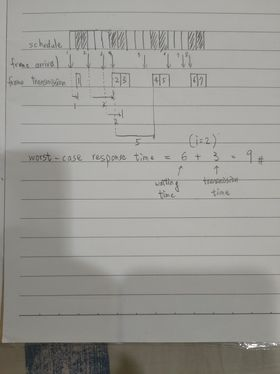 schedule
frame arrival
frame transmission 1 2 3 4 5 6 7
1 2
2
5
(i=2)
worst-case response time = 6 + 3 = 9 #
waiting time transmission time